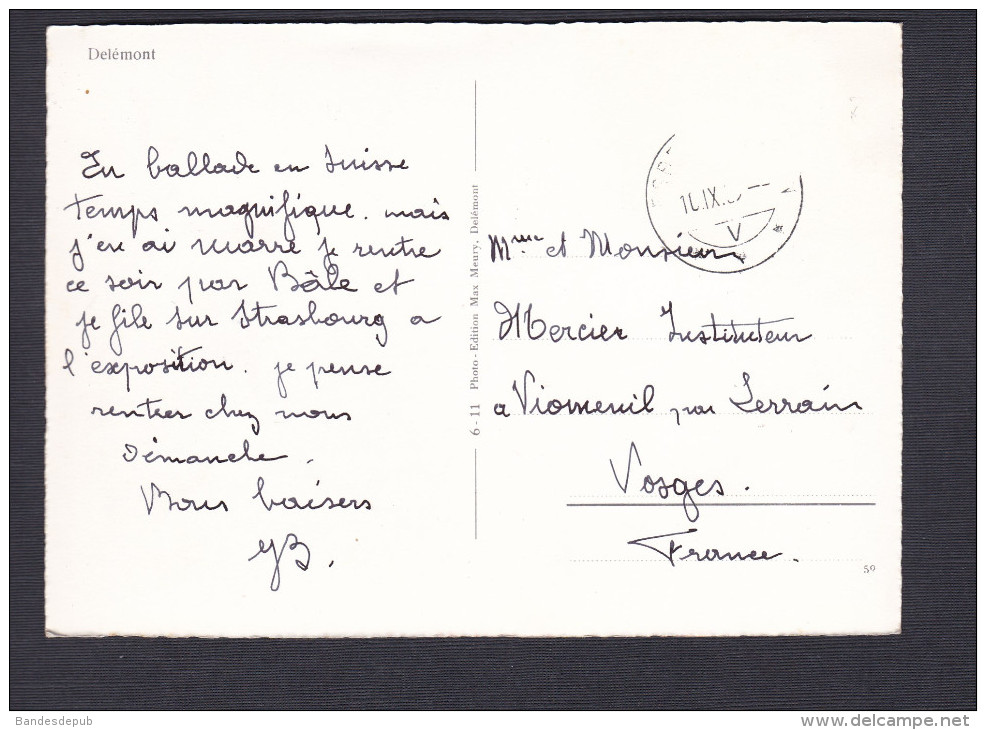 Delémont
En ballade en Suisse
Temps magnifique. mais
j'en ai marre je rentre
ce soir par Bâle et
je file sur Strasbourg a
l'exposition. je pense
rentrer chez nous
Dimanche.
Bons baisers
6-11 Photo-Edition Max Meury, Delémont
10.IX.
V
Mme et Monsieur
Mercier Instituteur
a Viomenil par Lerrain
Vosges.
France.
59
Bandesdepub
www.delcampe.net